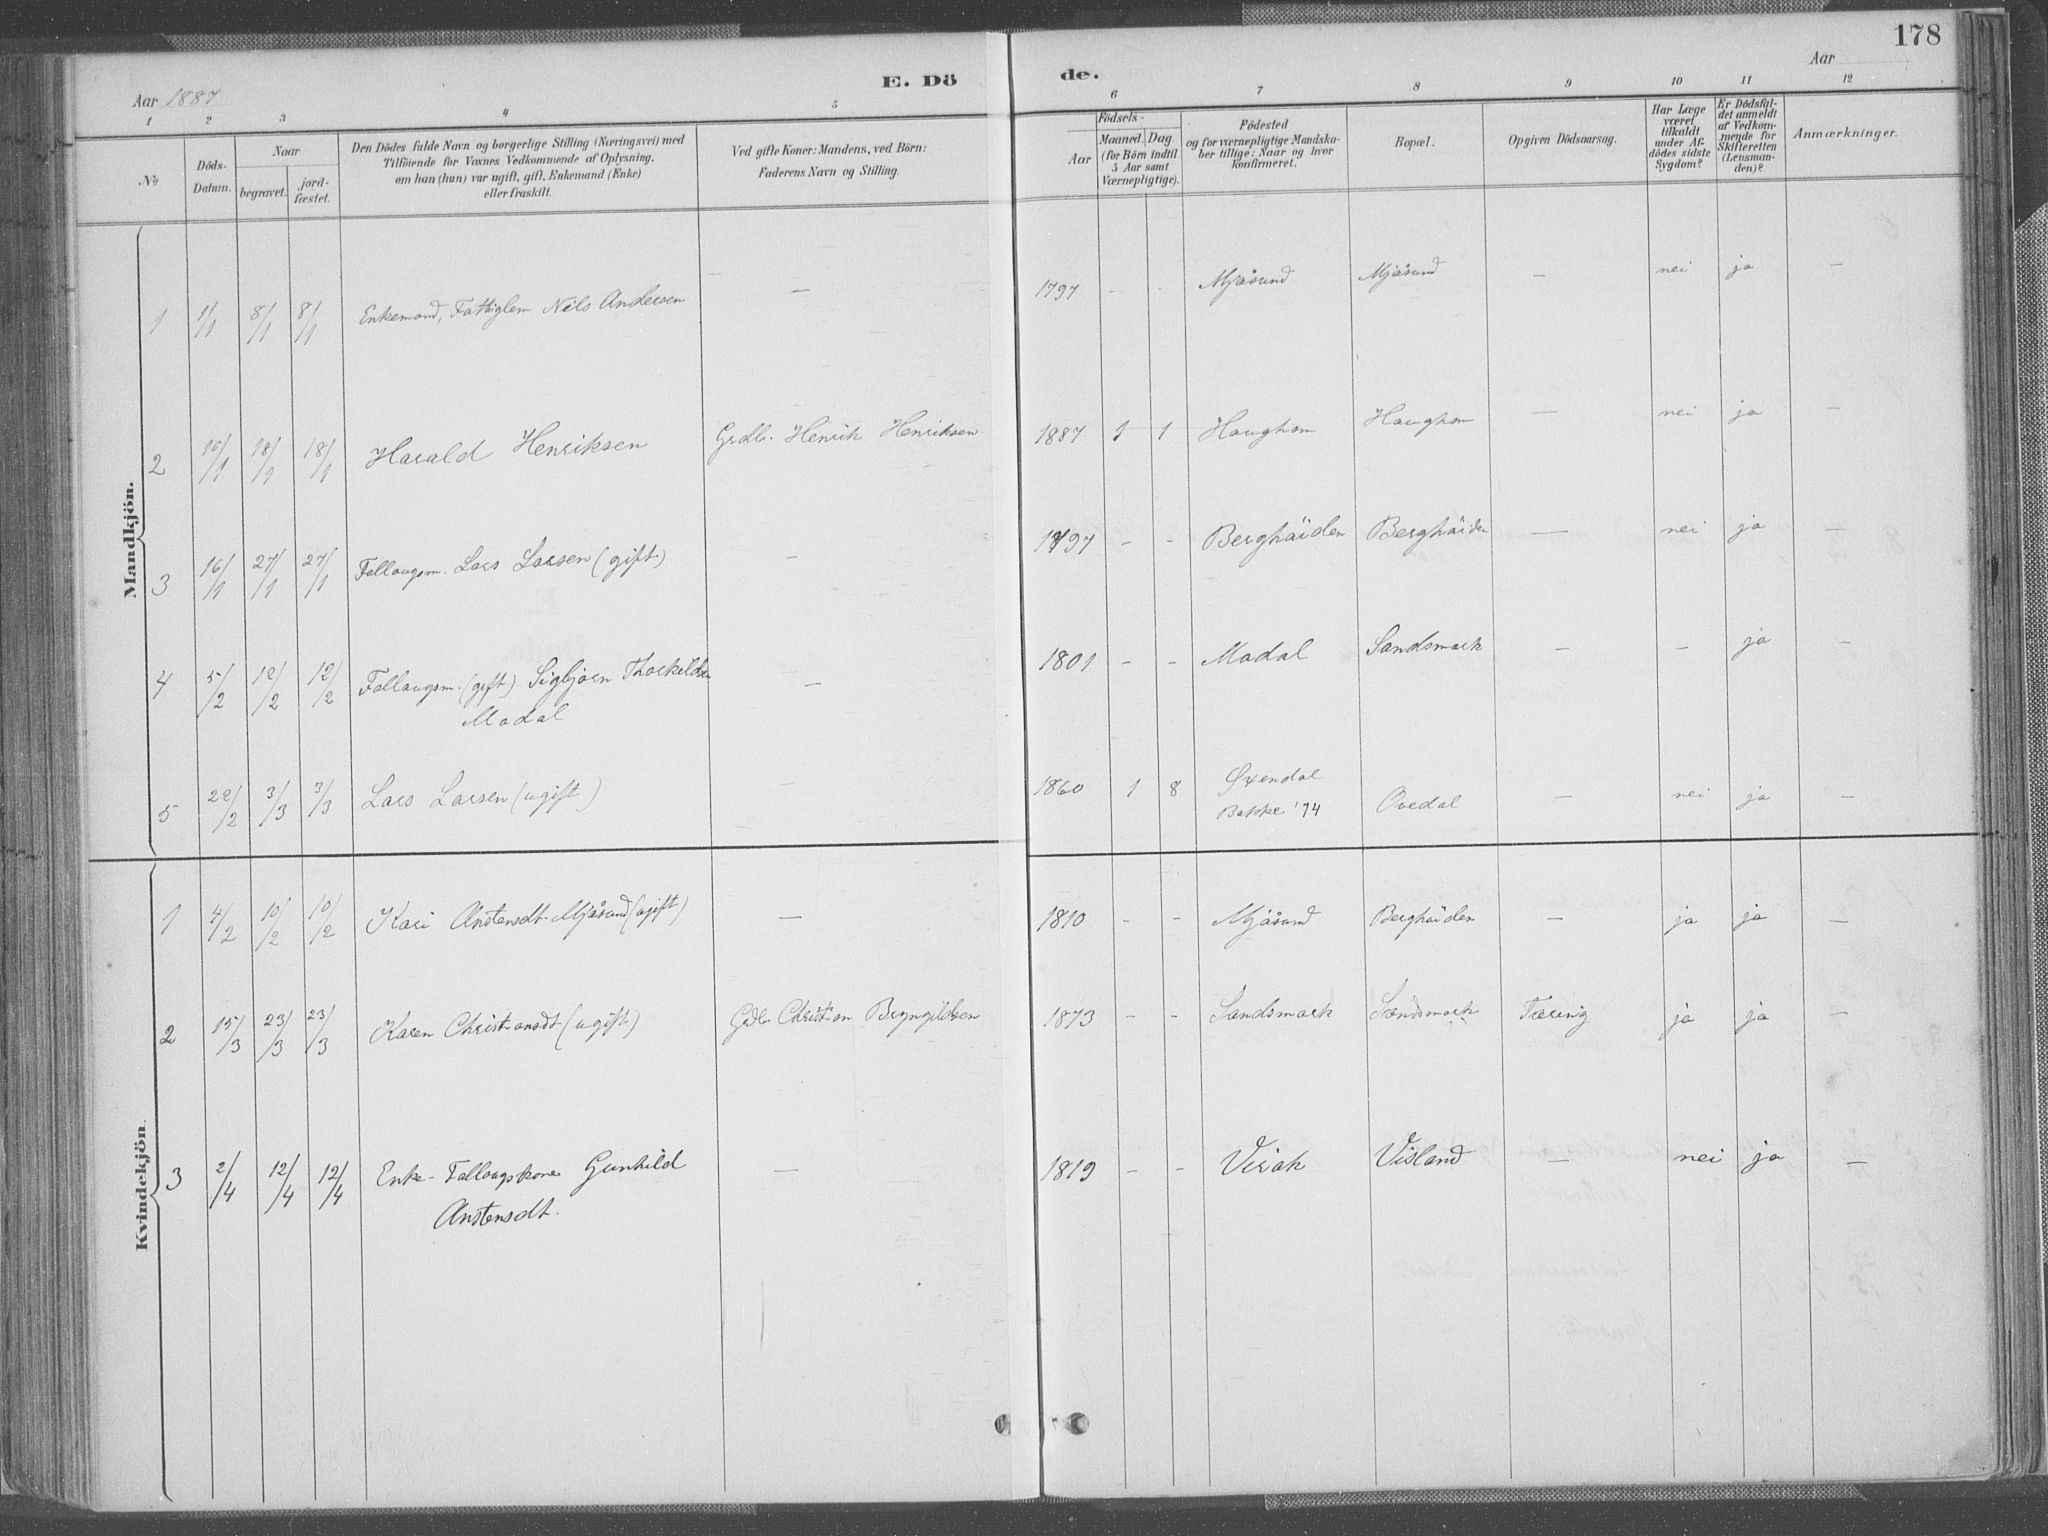 178
Aar 1887
E. Dö
de.
Aar
1 2 3 4 5 6 7 8 9 10 11 12
№
Döds-Datum.
Naar
begravet.
jord-fæstet.
Den Dödes fulde Navn og borgerlige Stilling (Næringsvei) med
Tilföiende for Voxnes Vedkommende af Oplysning,
om han (hun) var ugift, gift, Enkemand (Enke)
eller fraskilt.
Ved gifte Koner: Mandens, ved Börn:
Faderens Navn og Stilling.
Födsels-
Aar
Maaned. Dag.
(for Börn indtil
5 Aar samt
Værnepligtige).
Födested
og for værnepligtige Mandska-
ber tillige: Naar og hvor
konfirmeret.
Bopæl.
Opgiven Dödsaarsag.
Har Læge
været
tilkaldt
under Af-
dödes sidste
Sygdom?
Er Dödsfal-
det anmeldt
af Vedkom-
mende for
Skifteretten
(Lensman-
den)?
Anmærkninger.
Mandkjön.
1 1/1 8/1 8/1 Enkemand, Fattiglem Nils Andersen — 1797 - - Mjåsund Mjåsund — nei ja —
2 10/1 18/1 18/1 Harald Henriksen Grdbr. Henrik Henriksen 1887 1 1 Haughom Haughom — nei ja —
3 16/1 27/1 27/1 Follaugsm. Lars Larsen (gift) — 1797 - - Berghäiden Berghäiden — nei ja —
4 5/2 12/2 12/2 Follaugsm. (gift) Sigbjørn Thorkildsen — 1801 - - Modal Sandsmark — - ja —
Modal
5 22/2 3/3 3/3 Lars Larsen (ugift) — 1860 1 8 Øxendal
Bakke '74 Ovedal — nei ja —
Kvindekjön.
1 4/2 10/2 10/2 Kari Anstensdt. Mjåsund (ugift) — 1810 - - Mjåsund Berghäiden — ja ja —
2 15/3 23/3 23/3 Karen Christiansdt (ugift) Grdb. Christian Bryngildsen 1873 - - Sandsmark Sandsmark Tæring ja ja —
3 2/4 12/4 12/4 Enke-Follaugskone Gunhild — 1819 - - Virak Visland — nei ja —
Anstensdt.